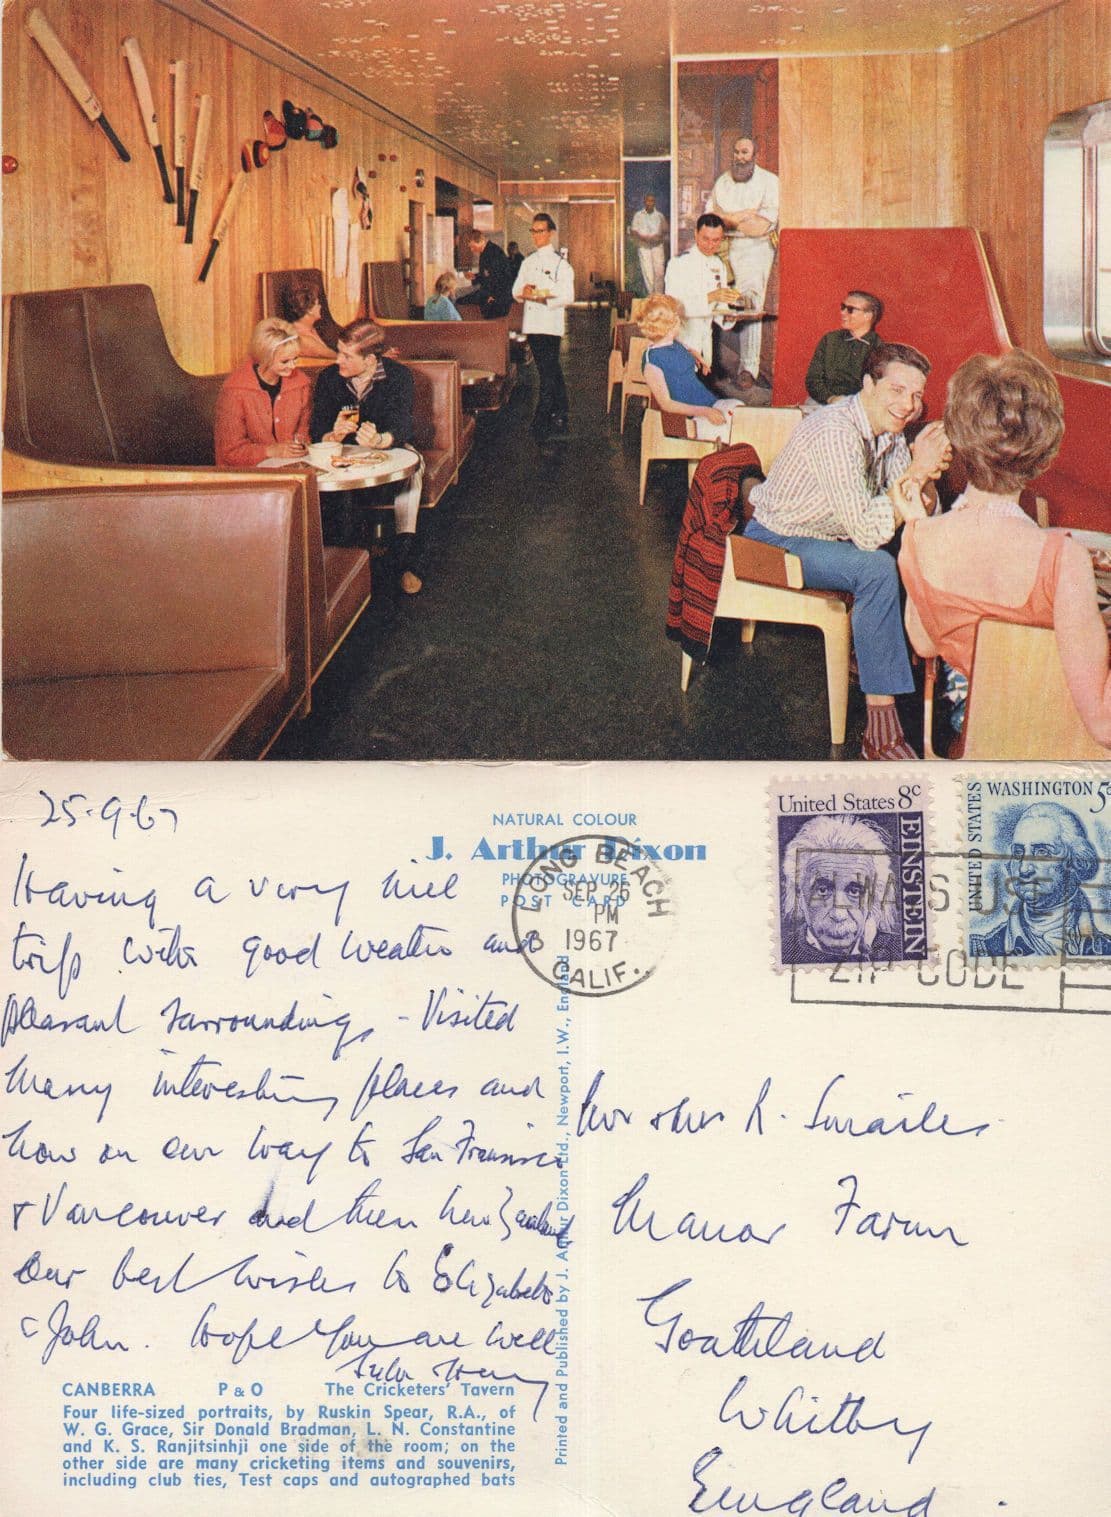 25-9-67
Having a very nice
trip with good weather and
pleasant surroundings, - Visited
many interesting places and
now on our way to San Francisco
& Vancouver and then New Zealand
Our best wishes to Elizabeth
& John. Hope you are well
NATURAL COLOUR
J. Arthur Dixon
PHOTOGRAVURE
POST CARD
LONG BEACH
SEP 26
PM
1967
CALIF.
United States 8c
EINSTEIN
WASHINGTON 5c
UNITED STATES
ALWAYS USE
ZIP CODE
Mr & Mrs R. Smailes
Manor Farm
Goathland
Whitby
England.
Printed and Published by J. Arthur Dixon Ltd., Newport, I.W., England
CANBERRA P & O The Cricketers' Tavern
Four life-sized portraits, by Ruskin Spear, R.A., of
W. G. Grace, Sir Donald Bradman, L. N. Constantine
and K. S. Ranjitsinhji one side of the room; on the
other side are many cricketing items and souvenirs,
including club ties, Test caps and autographed bats